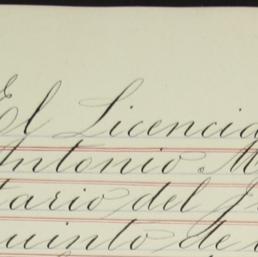 El Licencia
Antonio M
tario del J
quinto de